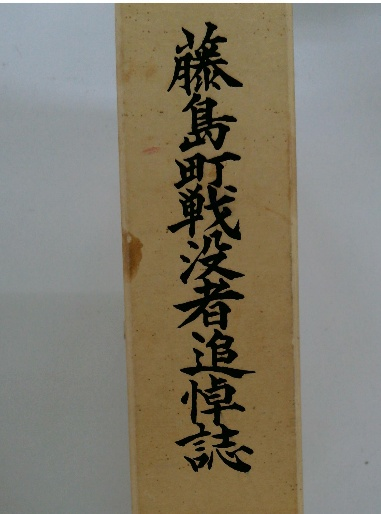 藤島町戦没者追悼誌